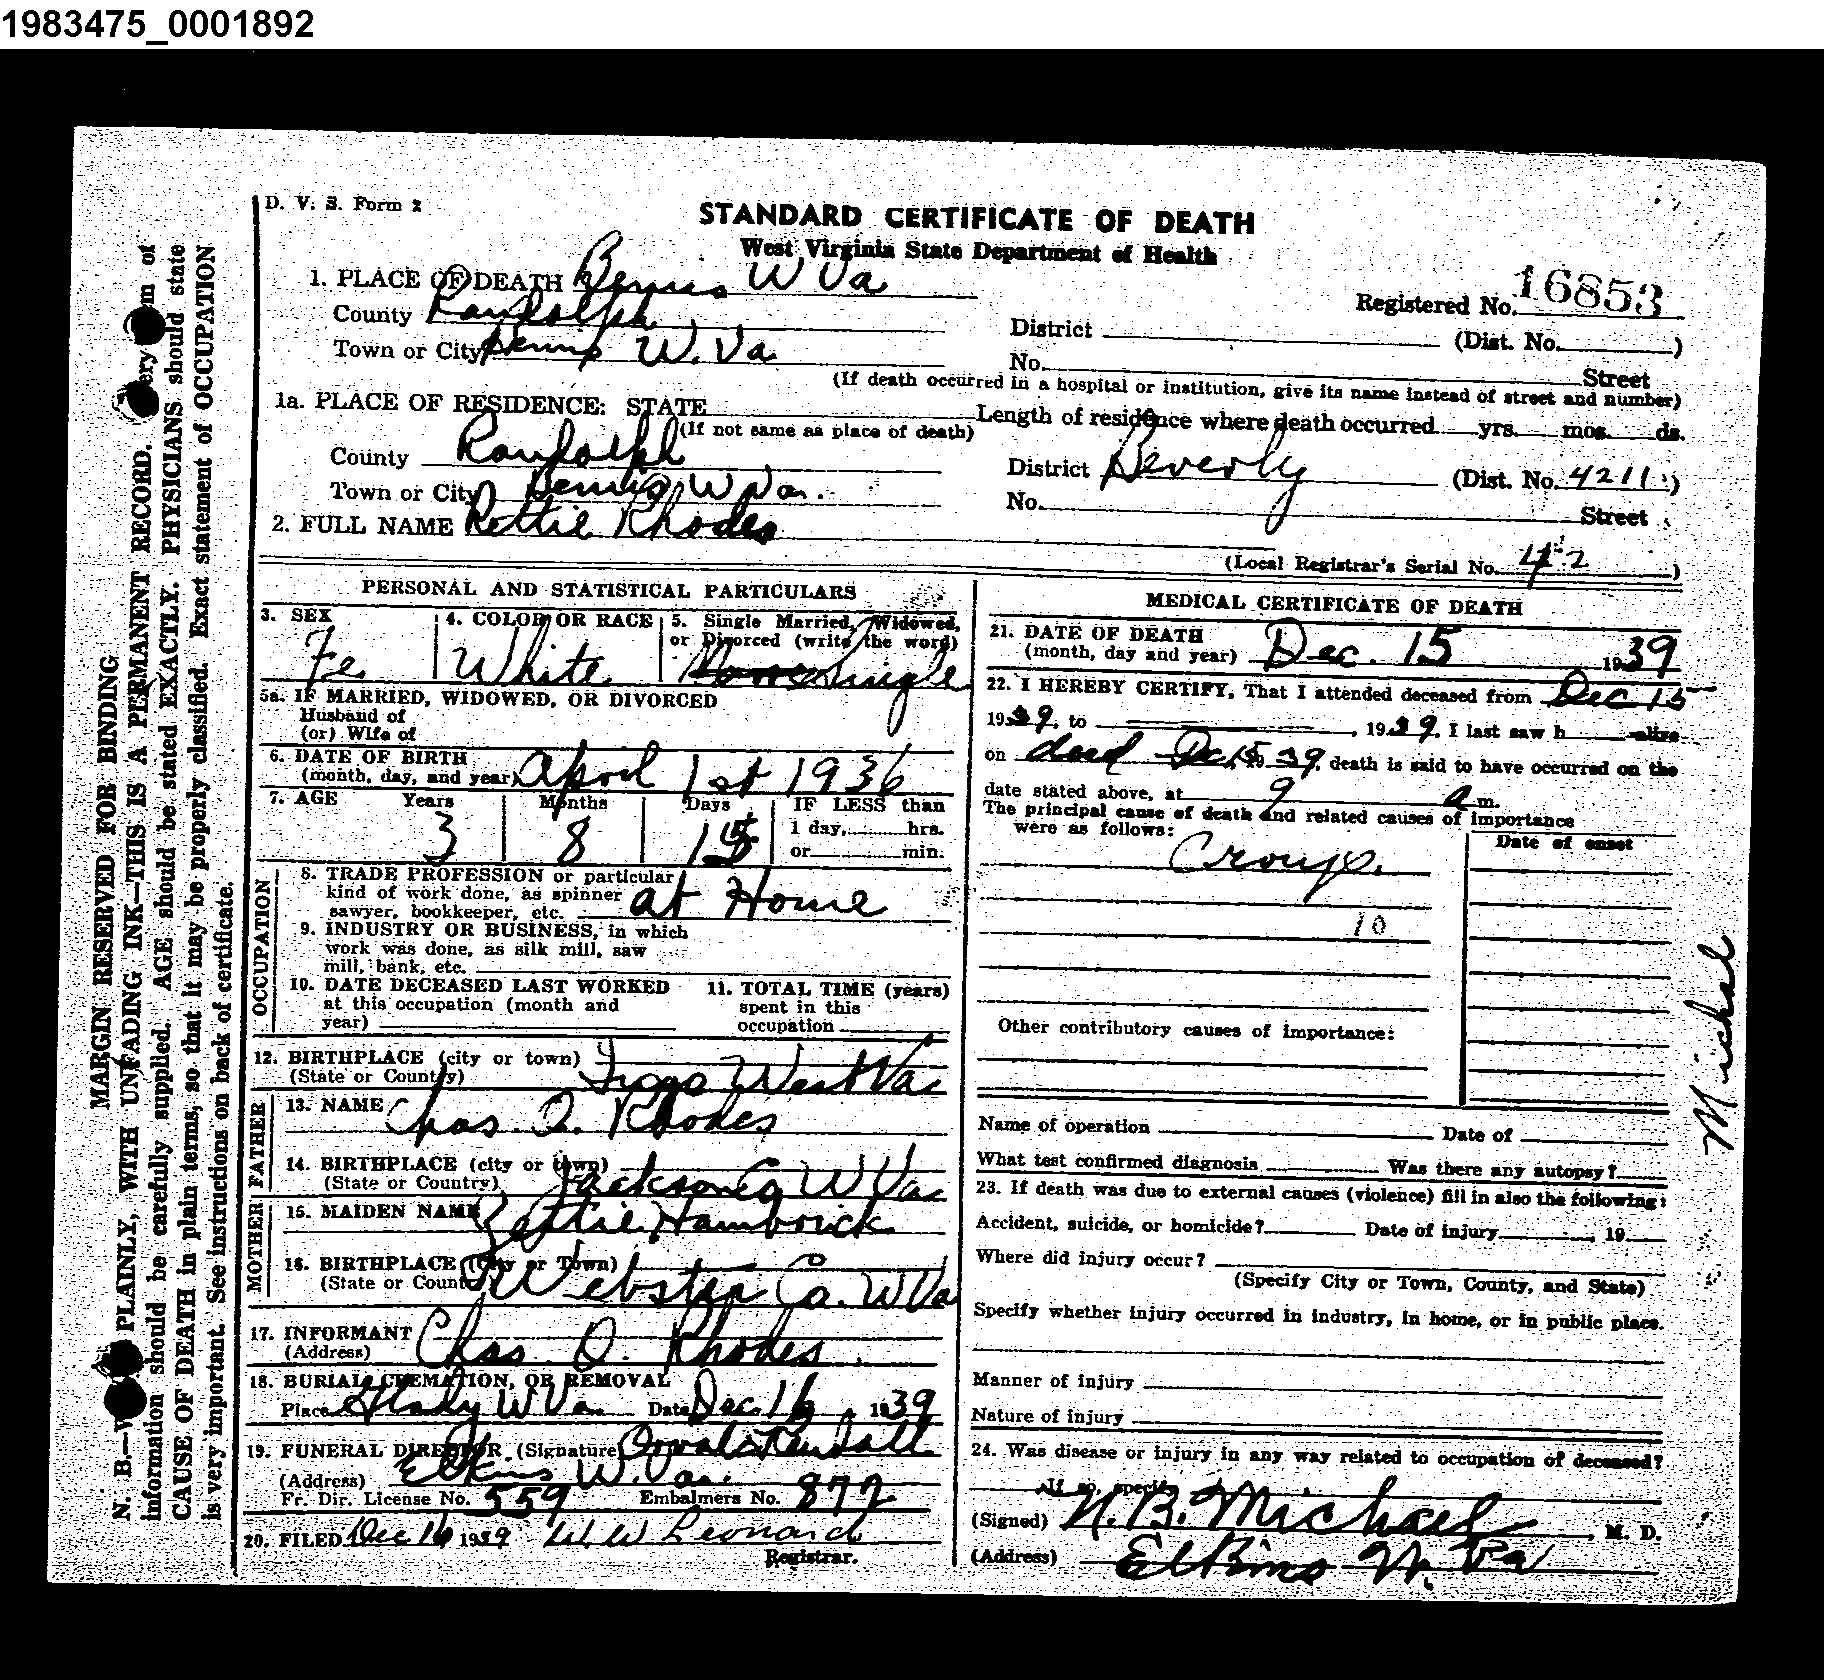 1983475_0001892
D. V. S. Form 2
STANDARD CERTIFICATE OF DEATH
West Virginia State Department of Health
1. PLACE OF DEATH Bemis W Va
Registered No. 16853
County Randolph
District (Dist. No. )
Town or City Bemis W. Va
No. Street
(If death occurred in a hospital or institution, give its name instead of street and number)
1a. PLACE OF RESIDENCE: STATE
(If not same as place of death)
Length of residence where death occurred yrs. mos. ds.
County Randolph
District Beverly (Dist. No. 4211)
Town or City Bemis W Va.
No. Street
2. FULL NAME Rettie Rhodes
(Local Registrar's Serial No. 42)
PERSONAL AND STATISTICAL PARTICULARS
3. SEX Fe.
4. COLOR OR RACE White
5. Single Married, Widowed, or Divorced (write the word) Single
5a. IF MARRIED, WIDOWED, OR DIVORCED
Husband of
(or) Wife of
6. DATE OF BIRTH
(month, day, and year) April 1st 1936
7. AGE Years Months Days IF LESS than
3 8 15 1 day, hrs.
or min.
OCCUPATION
8. TRADE PROFESSION or particular
kind of work done, as spinner
sawyer, bookkeeper, etc. at Home
9. INDUSTRY OR BUSINESS, in which
work was done, as silk mill, saw
mill, bank, etc.
10. DATE DECEASED LAST WORKED
at this occupation (month and
year)
11. TOTAL TIME (years)
spent in this
occupation
12. BIRTHPLACE (city or town)
(State or County) West Va
FATHER
13. NAME Chas. O. Rhodes
14. BIRTHPLACE (city or town)
(State or Country) Jackson Co W Va
MOTHER
15. MAIDEN NAME Hambrick
16. BIRTHPLACE (City or Town)
(State or Country) Webster Co. W Va
17. INFORMANT Chas O. Rhodes
(Address)
18. BURIAL, CREMATION, OR REMOVAL
Place Glady W Va. Date Dec. 16 1939
19. FUNERAL DIRECTOR (Signature) Kendall
(Address) Elkins W. Va.
Fr. Dir. License No. 559 Embalmers No. 872
20. FILED Dec 16 1939 W. W Leonard
Registrar.
MEDICAL CERTIFICATE OF DEATH
21. DATE OF DEATH
(month, day and year) Dec. 15 1939
22. I HEREBY CERTIFY, That I attended deceased from Dec 15
1939, to , 1939, I last saw h alive
on dead Dec, 15 1939, death is said to have occurred on the
date stated above, at 9 a m.
The principal cause of death and related causes of importance
were as follows:
Date of onset
Croup.
10
Other contributory causes of importance:
Name of operation Date of
What test confirmed diagnosis Was there any autopsy?
23. If death was due to external causes (violence) fill in also the following:
Accident, suicide, or homicide? Date of injury 19
Where did injury occur?
(Specify City or Town, County, and State)
Specify whether injury occurred in industry, in home, or in public place.
Manner of injury
Nature of injury
24. Was disease or injury in any way related to occupation of deceased?
If so, specify
(Signed) H. B. Michael, M. D.
(Address) Elkins W. Va
Michael
MARGIN RESERVED FOR BINDING
N. B.—W PLAINLY, WITH UNFADING INK—THIS IS A PERMANENT RECORD. ery em of
information should be carefully supplied. AGE should be stated EXACTLY. PHYSICIANS should state
CAUSE OF DEATH in plain terms, so that it may be properly classified. Exact statement of OCCUPATION
is very important. See instructions on back of certificate.